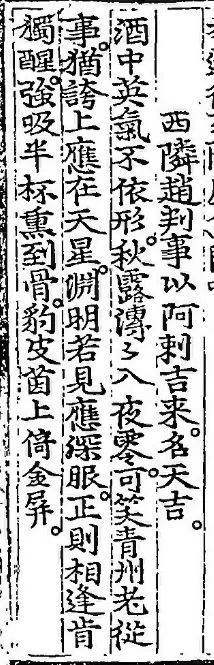 西隣趙判事以阿剌吉來。名天吉。
酒中英氣不依形。秋露漙〻入夜零。可笑靑州老從
事。猶誇上應在天星。淵明若見應深服。正則相逢肯
獨醒。強吸半杯熏到骨。豹皮茵上倚金屛。